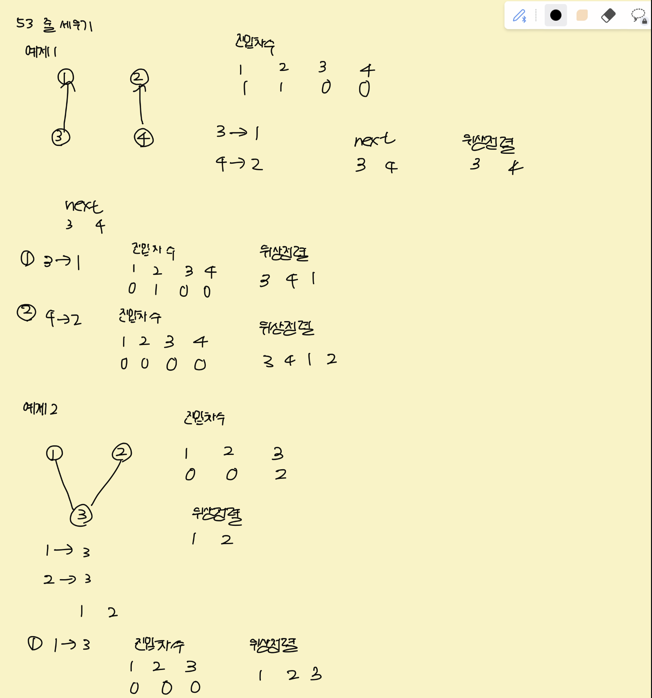 53 줄 세우기
예제1
진입차수
1 2 3 4
1 1 0 0
1 2
3 4
3→1
4→2
next
3 4
위상정렬
3 4
next
3 4
① 3→1
진입차수
1 2 3 4
0 1 0 0
위상정렬
3 4 1
② 4→2
진입차수
1 2 3 4
0 0 0 0
위상정렬
3 4 1 2
예제2
진입차수
1 2 3
0 0 2
1 2
3
위상정렬
1 2
1→3
2→3
1 2
① 1→3
진입차수
1 2 3
0 0 0
위상정렬
1 2 3